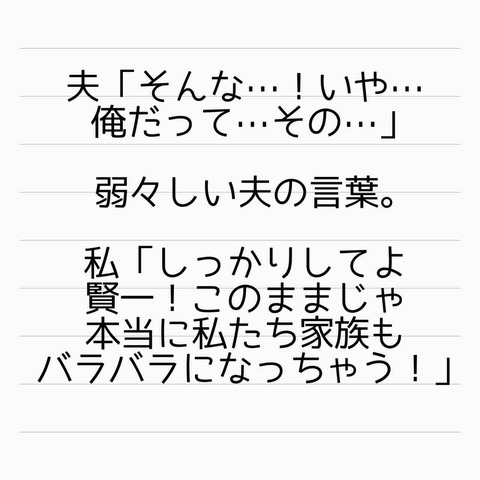 夫「そんな…！いや…
俺だって…その…」
弱々しい夫の言葉。
私「しっかりしてよ
賢一！このままじゃ
本当に私たち家族も
バラバラになっちゃう！」